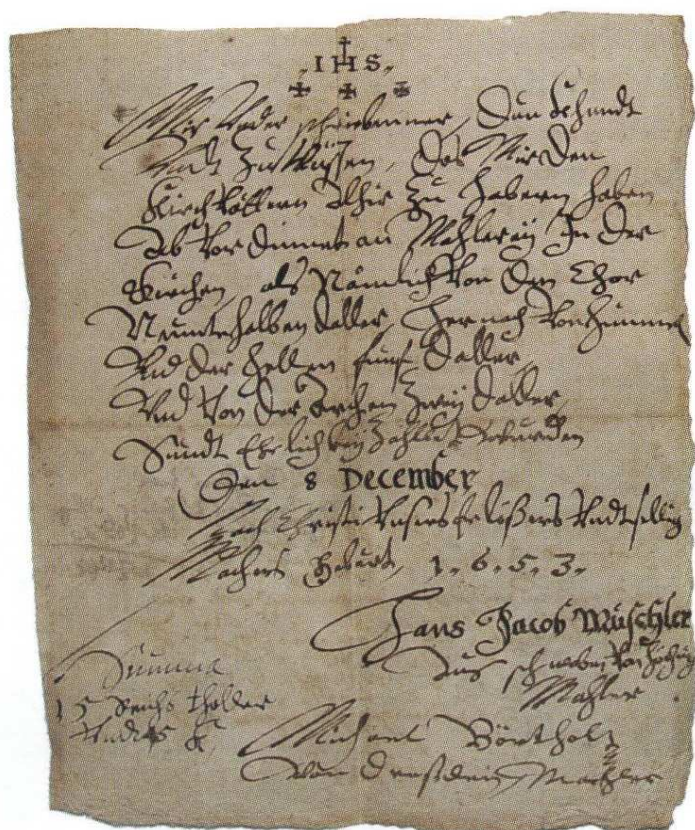 IHS
Wir Under schriebenner, Dun Khundt
Undt Zu Wissen, Das Wir Den
Kirch Vättern Alhie Zu haben
Ab Vor Dinnet an Mahlereÿ In Der
Kirchen, als Nämlich Von Den Chor
Neuntehalben daller, Hernach Von Himmel
Und Der Hellen fünf Daller,
Und Von Der Zweÿ Daller,
Sindt Ehrlich Worden
Den 8 December
Nach Christi Unsers Erlößers Undt selig
Machers Geburt, 1. 6. 5. 3.
Hans Jacob Müschler
Aus schwaben Von
Mahler
Summa
15 Reichs thaller
Michael Börtholt
Von Dresden, Mahler